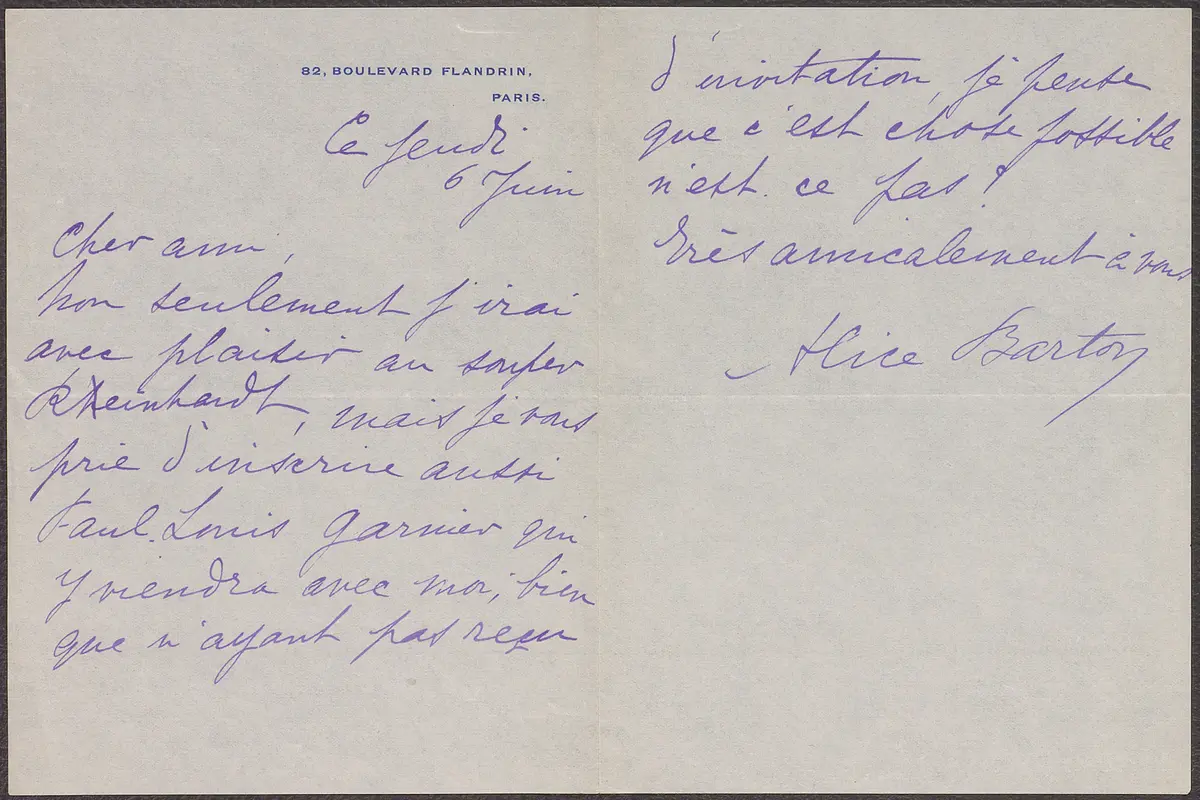 82, BOULEVARD FLANDRIN.
PARIS.
Ce Jeudi
6 Juin
Cher ami,
Non seulement j'irai
avec plaisir au souper
Rheinhardt, mais je vous
prie d'inscrire aussi
Paul. Louis Garnier qui
y viendra avec moi, bien
que n'ayant pas reçu
d'invitation, je pense
que c'est chose possible
n'est. ce pas?
Très amicalement à vous
Alice Barton